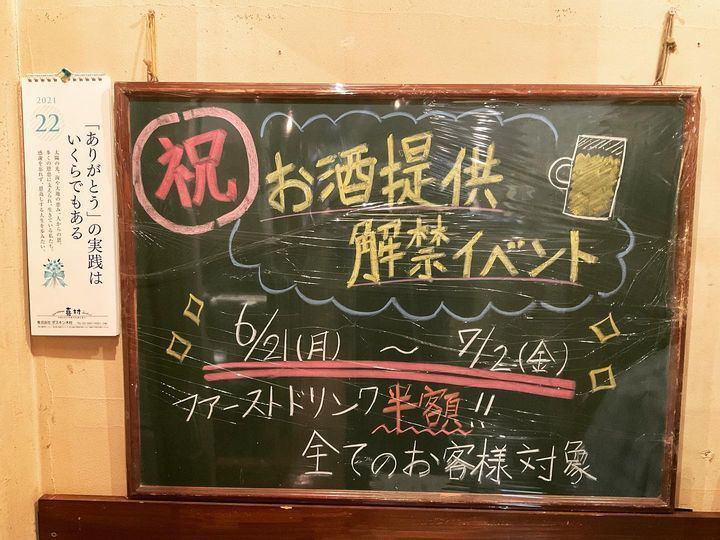 祝
お酒提供
解禁イベント
6/21(月) ～ 7/2(金)
ファーストドリンク半額!!
全てのお客様対象
2021
22
「ありがとう」の実践は
いくらでもある